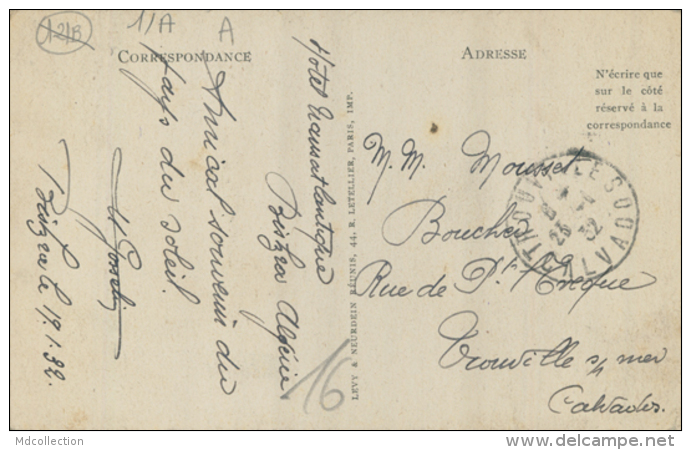 121B
1/A
A
CORRESPONDANCE
ADRESSE
N'écrire que
sur le côté
réservé à la
correspondance
Hôtel Transatlantique
Biskra Algérie
Amical souvenir du
Pays du soleil.
Biskra le 17.1.32.
16
LEVY & NEURDEIN RÉUNIS, 44, R. LETELLIER, PARIS, IMP.
M. M. Mousset
Boucher
Rue de Pt
Trouville s/ mer
Calvados.
TROUVILLE
CALVADOS
23
32
Mdcollection
delcampe.net